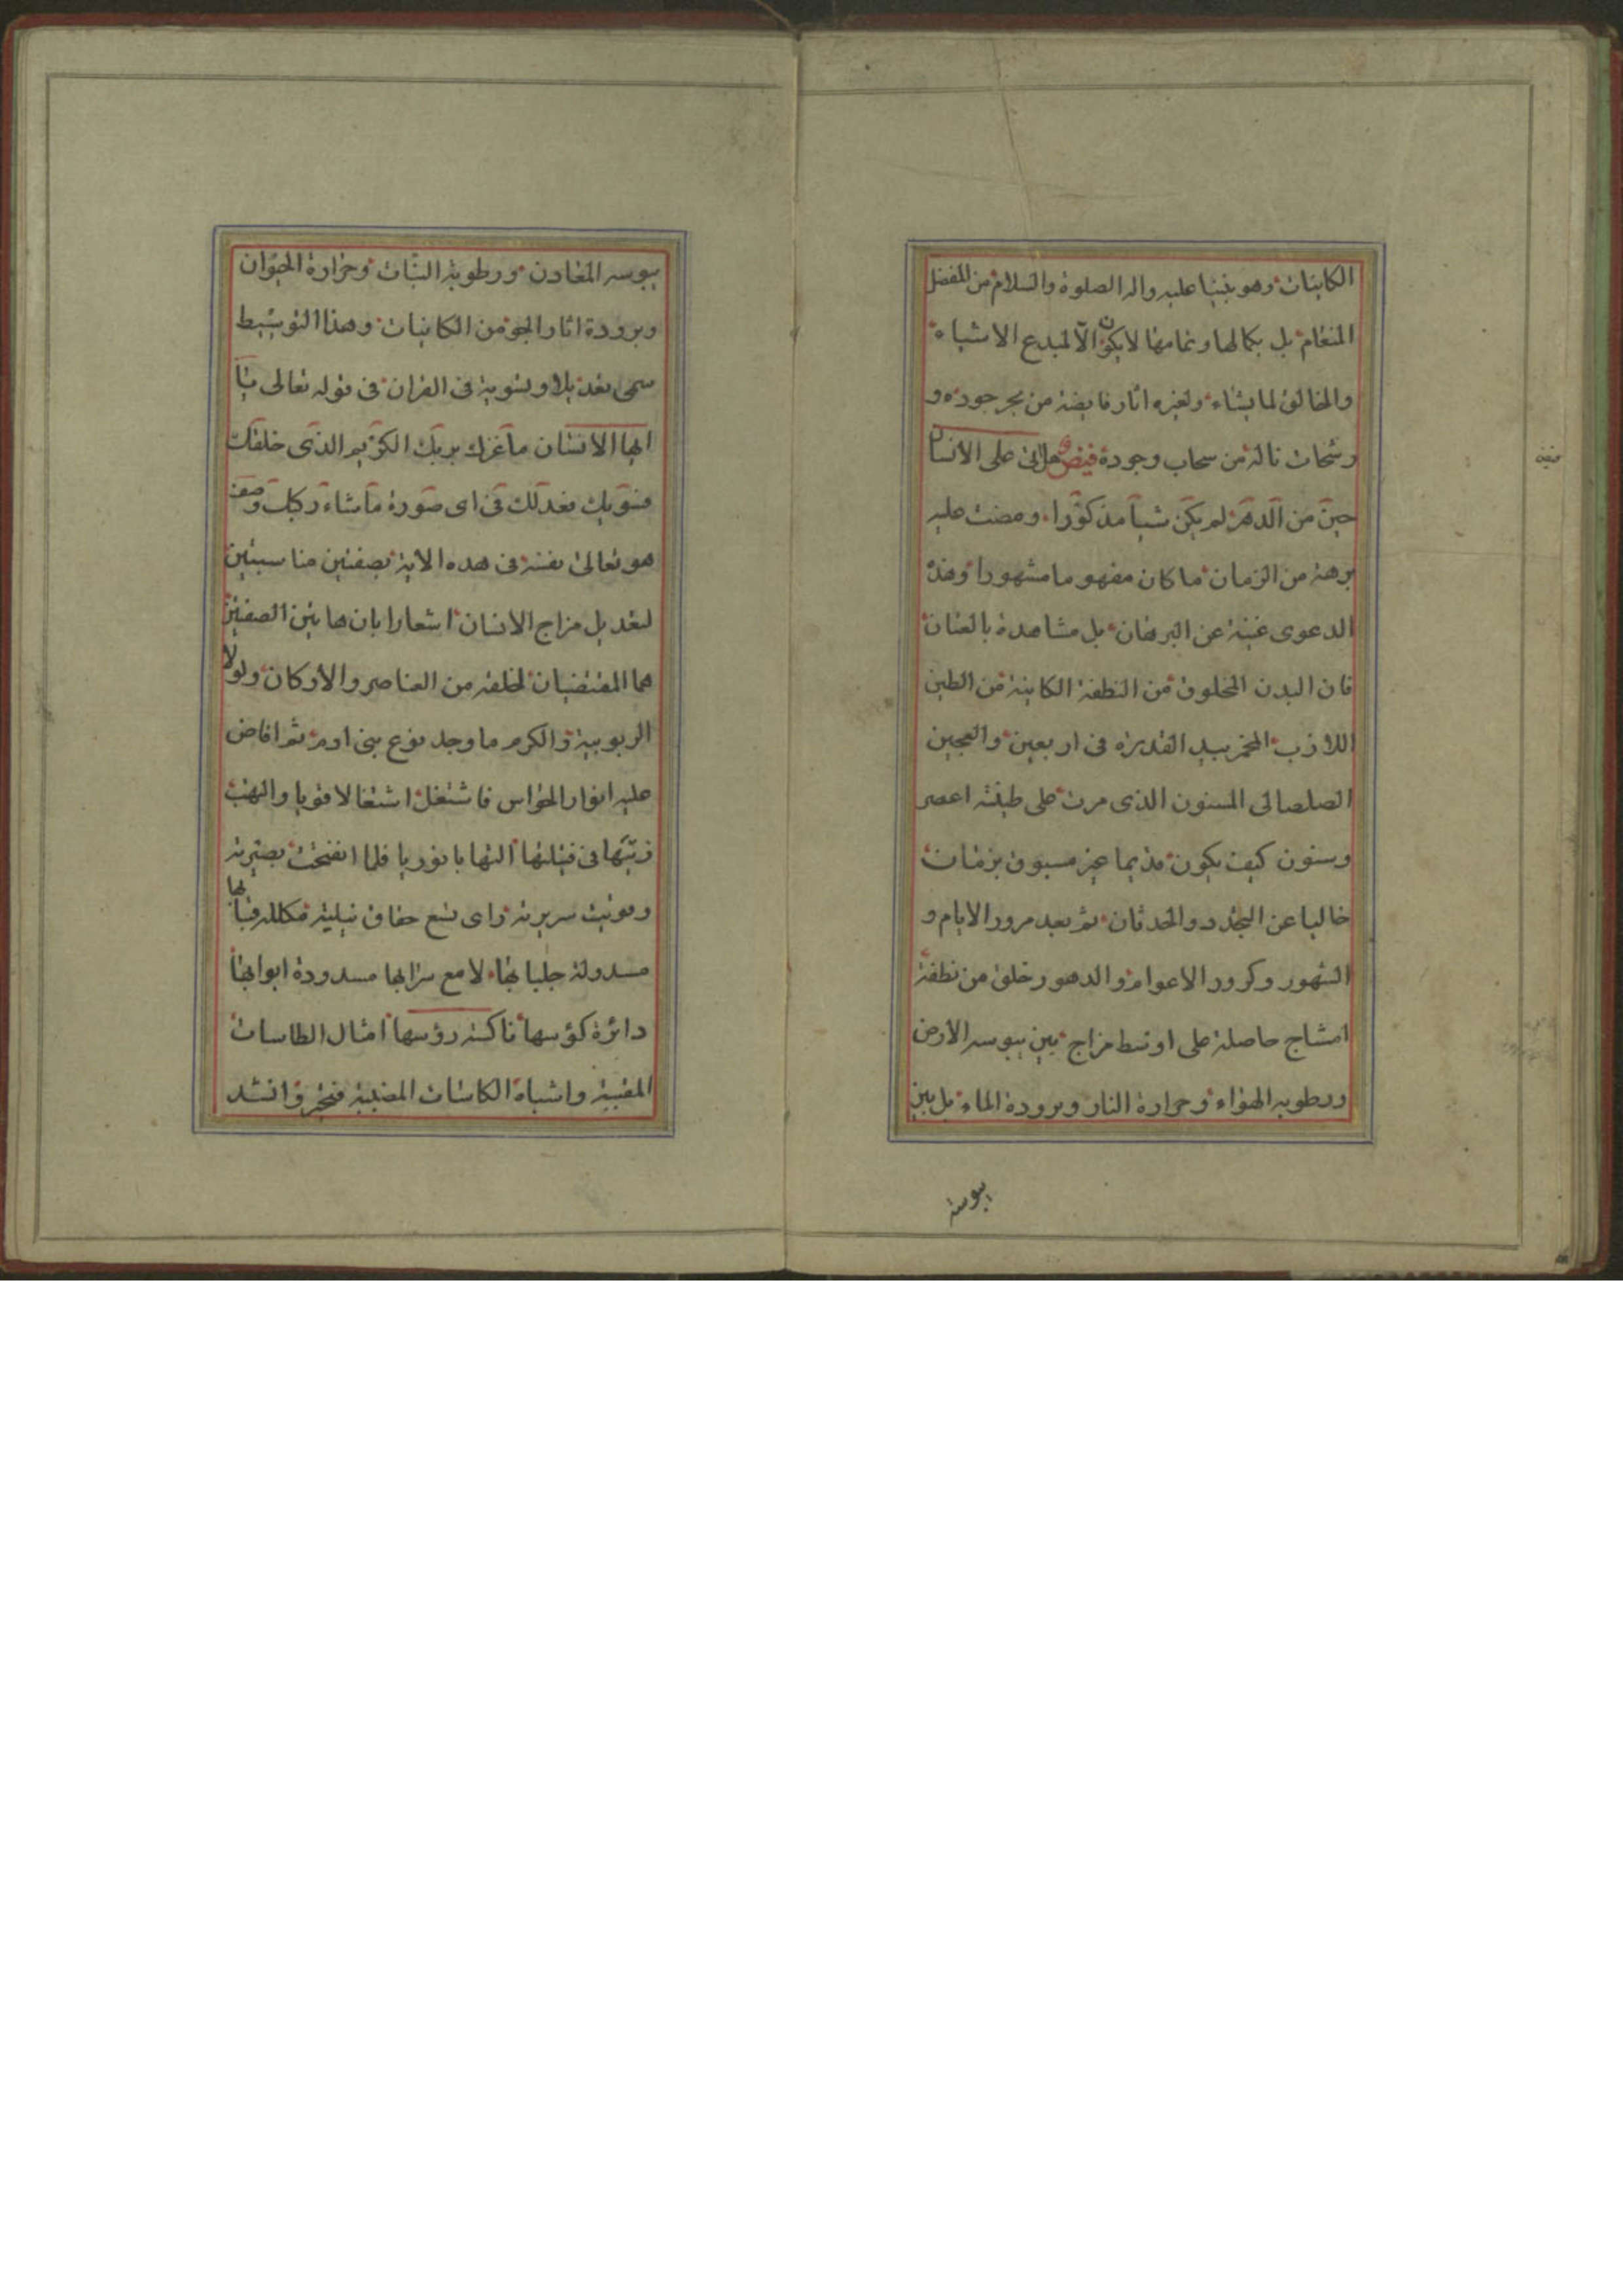 الكاينات وهو نبينا عليه واله الصلوة والسلام من المفضل
المنعام بل بكمالها وتمامها لا يكون الا لمبدع الاشياء
والخالق لما يشاء ولغيره اثار فايضة من بحر جوده و
رشحات نالة من سحاب وجوده فيض هل اتى على الانسان
حين من الدهر لم يكن شيأ مذكورا ومضت عليه
برهة من الزمان ما كان مفهوما مشهورا وهذه
الدعوى غنية عن البرهان بل مشاهدة بالعيان
فان البدن المخلوق من النطفة الكاينة من الطين
اللازب المخمر بيد القدرة فى اربعين والعجين
الصلصالى المسنون الذى مرت على طينته اعصر
وسنون كيف يكون قديما غير مسبوق بزمان
خاليا عن التجدد والحدثان ثم بعد مرور الايام و
الشهور وكرور الاعوام والدهور خلق من نطفة
امشاج حاصلة على اوسط مزاج بين يبوسه الارض
ورطوبه الهواء وحرارة النار وبرودة الماء بل بين
يبوسة
يبوسه المعادن ورطوبة النبات وحرارة الحيوان
وبرودة اثار الجو من الكاينات وهذا التوسيط
سمى تعديلا وتسوية فى القران فى قوله تعالى يا
ايها الانسان ما غرك بربك الكريم الذى خلقك
فسويك فعدلك فى اى صورة ما شاء ركبك وصف
هو تعالى نفسه فى هذه الاية بصفتين مناسبتين
لتعديل مزاج الانسان اشعارا بان هاتين الصفتين
هما المقتضيان لخلقه من العناصر والأركان ولولا
الربوبية والكرم ما وجد نوع بنى ادم ثم افاض
عليه انوار الحواس فاشتعل اشتعالا قويا والتهب
زيتها فى فتيلتها التهابا نوريا فلما انفتحت بصيرته
وقويت سريرته راى تسع حقاق نيلية مكللة قبابها
مسدولة جلبابها لامع سرابها مسدودة ابوابها
دائرة كؤسها ناكسة رؤسها امثال الطاسات
المقببة واشباه الكاسات المضببة فتحير وانشد